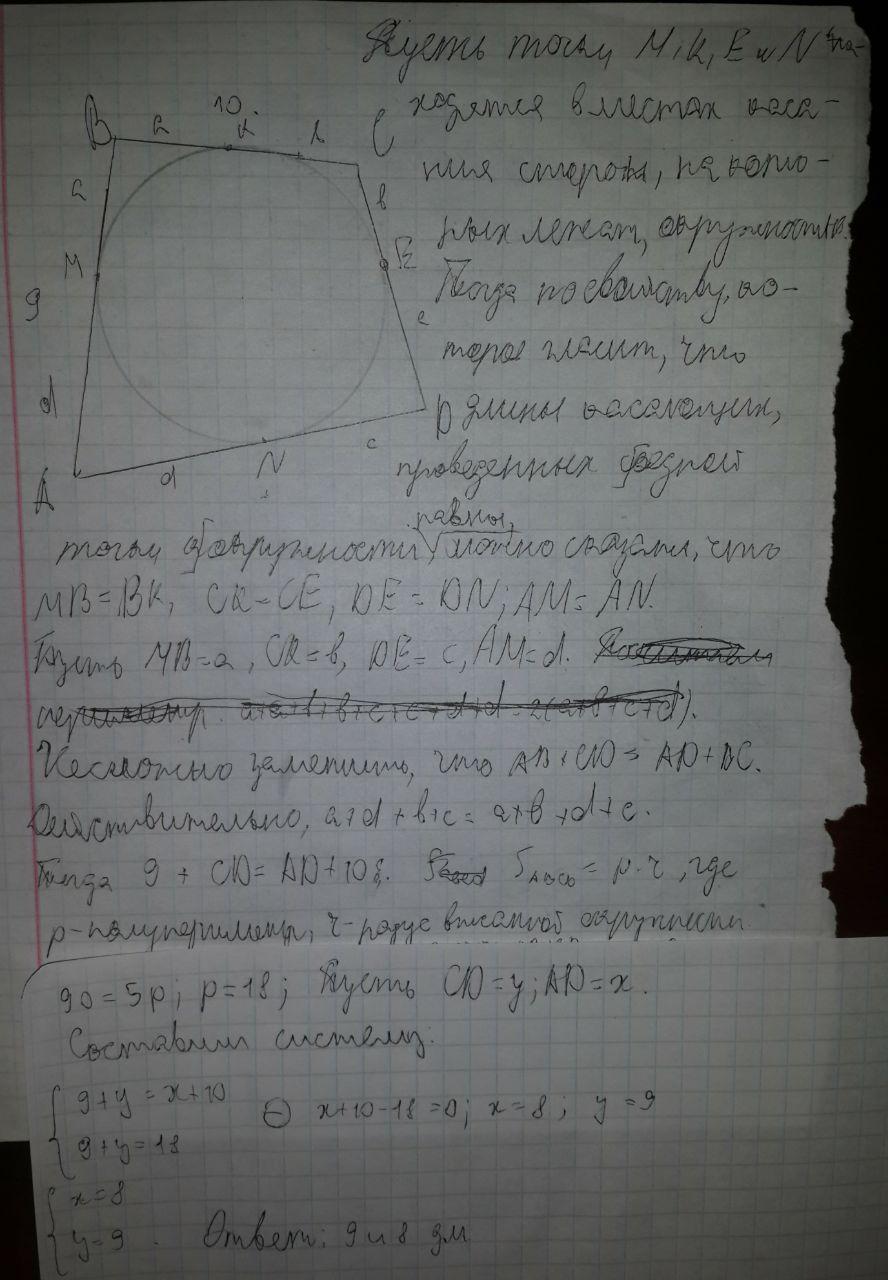 Пусть точки M, K, E и N на-
ходятся в местах каса-
ния сторон, на кото-
рых лежат, окружности.
Тогда по свойству, ко-
торое гласит, что
длины касательных,
проведенных из одной
равны,
точки к окружности можно сказать, что
MB=BK, CK=CE, DE=DN; AM=AN.
Пусть MB=a, CK=b, DE=c, AM=d.
a+a+b+b+c+c+d+d=2(a+b+c+d).
Несложно заметить, что AB+CD=AD+BC.
Действительно, a+d+b+c=a+b+d+c.
Тогда 9+CD=AD+10. S ABCD = p·r, где
p-полупериметр, r-радиус вписанной окружности
90=5p; p=18; Пусть CD=y; AD=x.
Составим систему:
9+y=x+10
9+y=18
⊖ x+10-18=0; x=8; y=9
x=8
y=9. Ответ: 9 и 8 дм
B a 10. K b C
a b
M E
9 c
d D
c
A d N